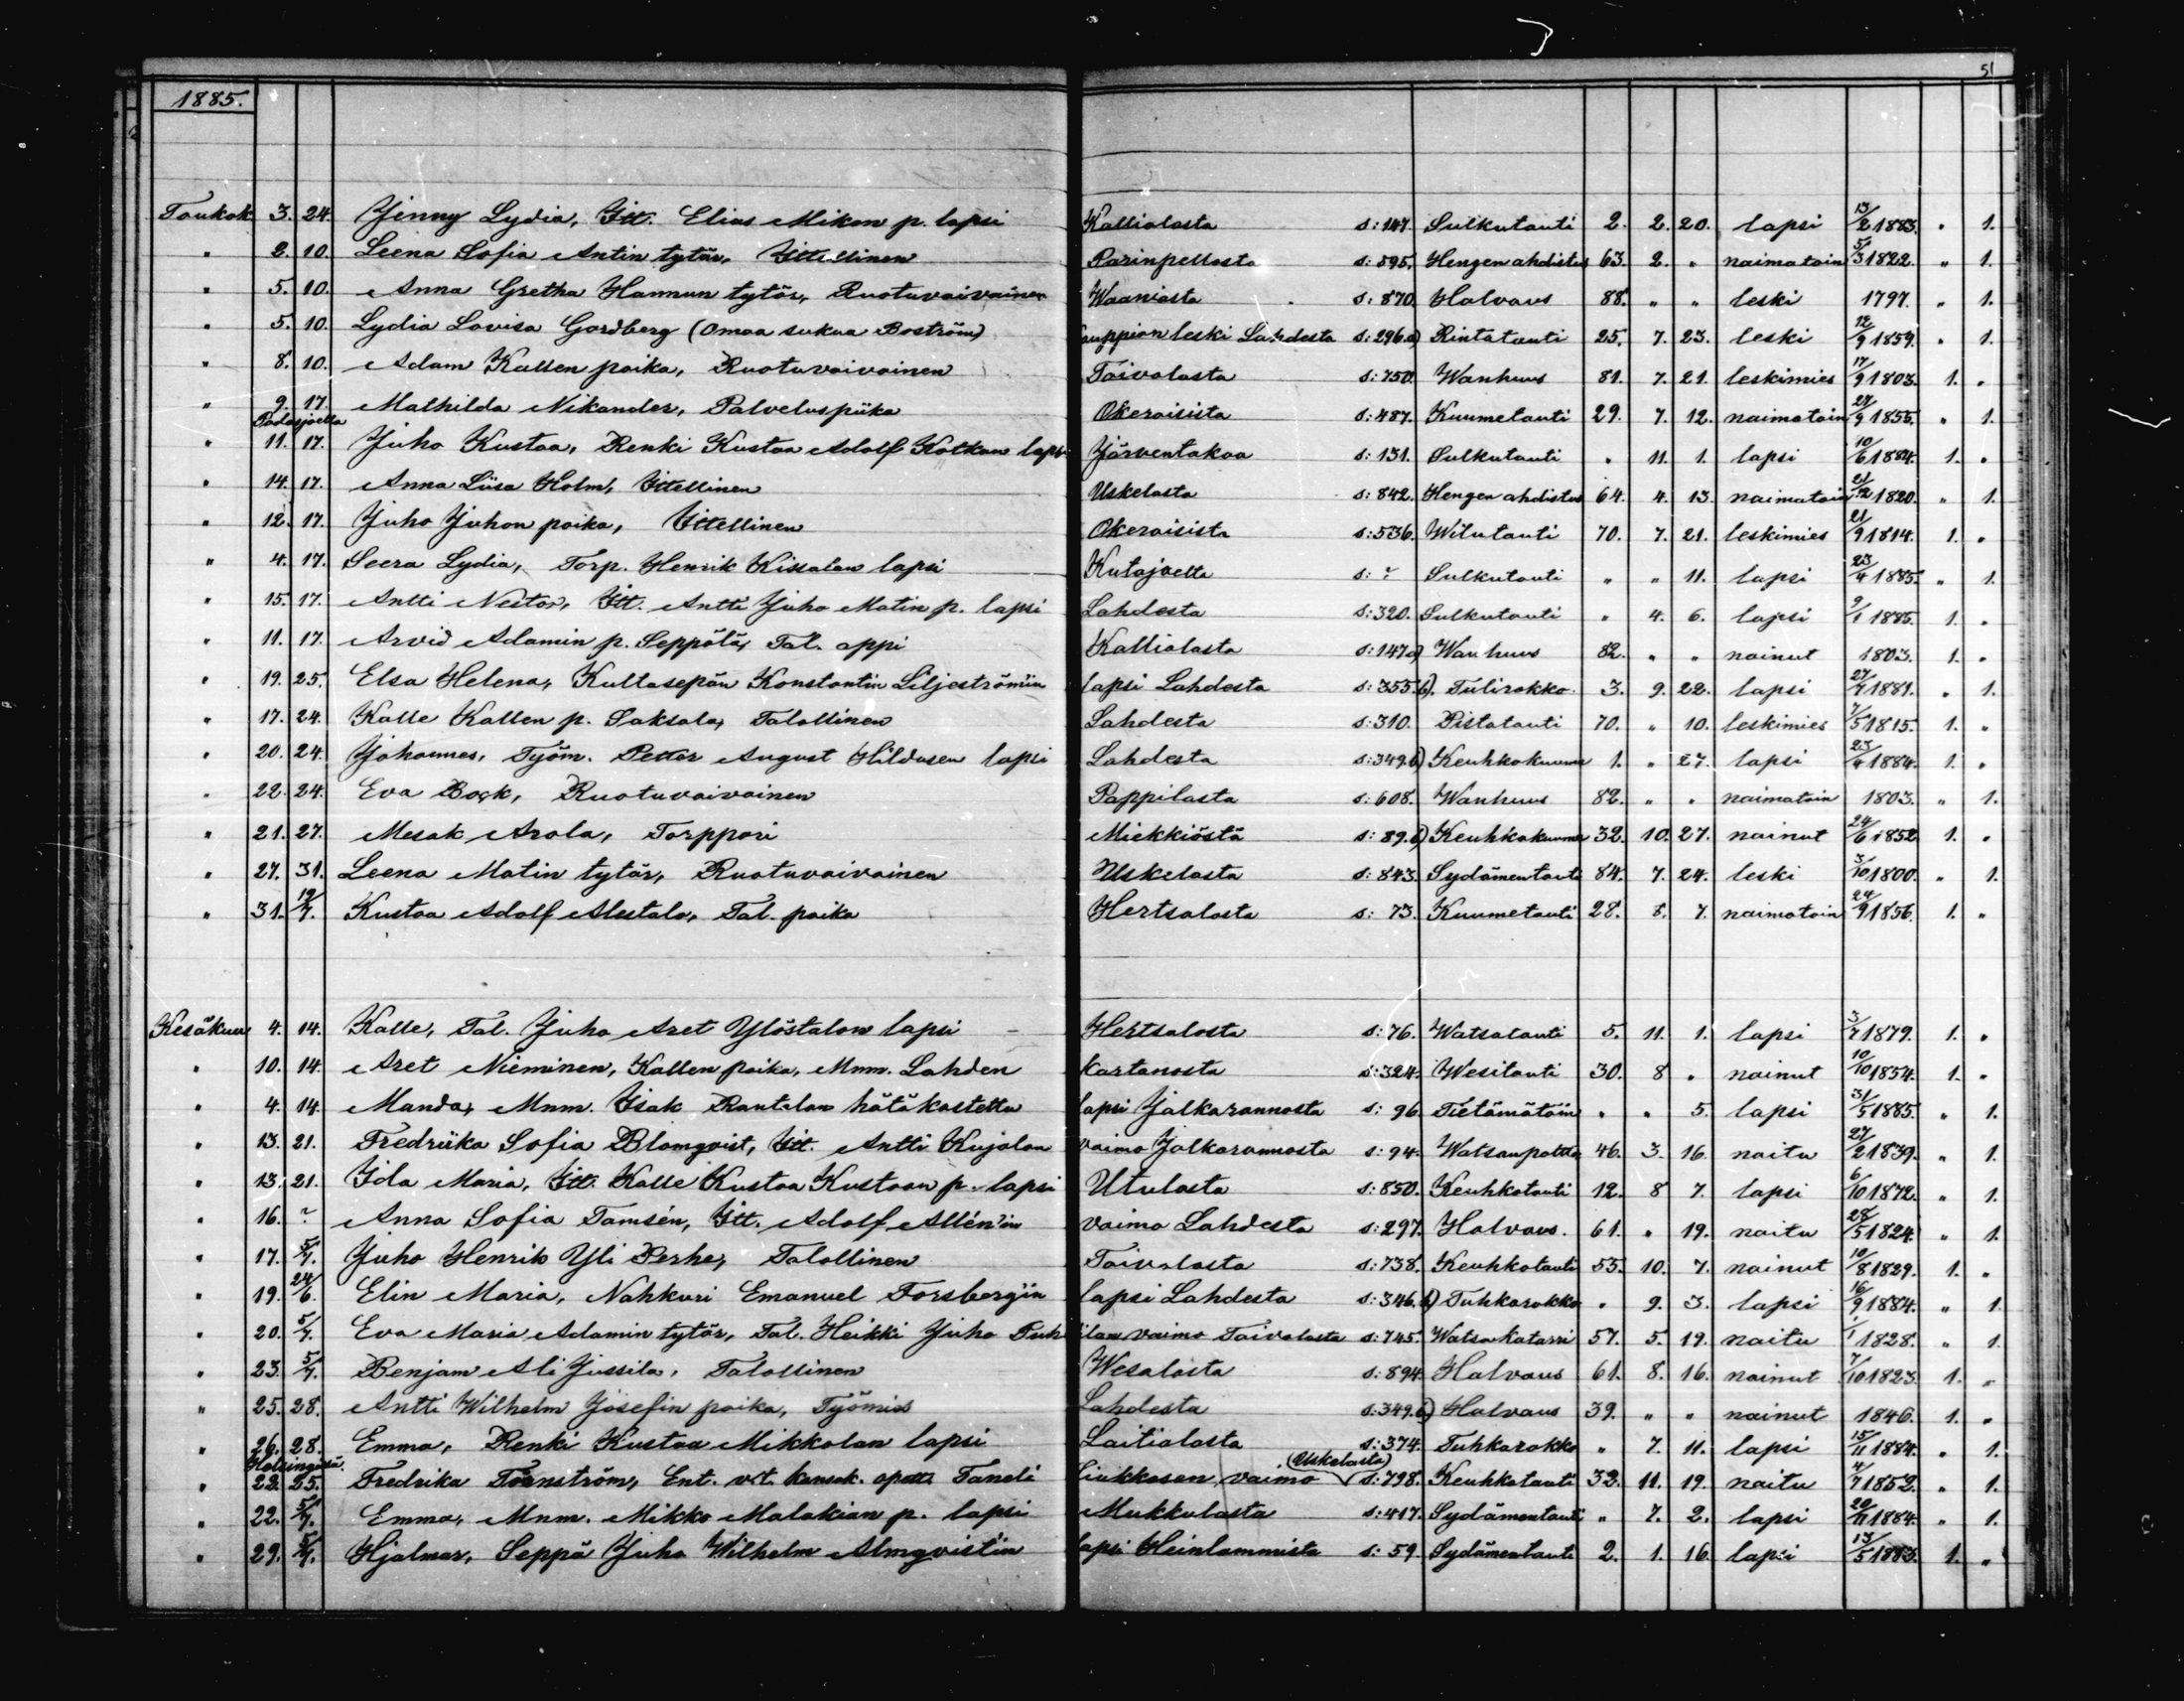 51
1885.
Toukok. 3. 24. Jenny Lydia, Itt. Elias Mikon p. lapsi Kallialasta s: 147. Sulkutauti 2. 2. 20. lapsi 13/2 1883. " 1.
" 2. 10. Leena Sofia Antin tytär, Ittellinen Parinpellosta s: 595. Hengenahdistus 63. 2. " naimatoin 5/3 1822. " 1.
" 5. 10. Anna Gretha Hannun tytär, Ruotuvaivainen Waaniasta s: 870. Halvaus 88. " " leski 1797. " 1.
" 5. 10. Lydia Lovisa Gardberg (omaa sukua Boström) kauppian leski Lahdesta s: 296.a) Rintatauti 25. 7. 23. leski 12/9 1859. " 1.
" 8. 10. Adam Kallen poika, Ruotuvaivainen Taivalasta s: 750. Wanhuus 81. 7. 21. leskimies 17/9 1803. 1. "
" 9. 17. Mathilda Nikander, Palveluspiika Okeroisista s: 487. Kuumetauti 29. 7. 12. naimatoin 27/9 1855. " 1.
Padasjoella
" 11. 17. Juho Kustaa, Renki Kustaa Adolf Kotkan lapsi Järventakaa s: 131. Sulkutauti " 11. 1. lapsi 10/6 1884. 1. "
" 14. 17. Anna Liisa Holm, Ittellinen Uskelasta s: 842. Hengenahdistus 64. 4. 13. naimatoin 21/12 1820. " 1.
" 12. 17. Juho Juhon poika, Ittellinen Okeroisista s: 536. Wilutauti 70. 7. 21. leskimies 21/9 1814. 1. "
" 4. 17. Seera Lydia, Torp. Henrik Kissalan lapsi Kutajoelta s: ? Sulkutauti " " 11. lapsi 23/4 1885. " 1.
" 15. 17. Antti Nestor, Itt. Antti Juho Matin p. lapsi Lahdesta s: 320. Sulkutauti " 4. 6. lapsi 9/1 1885. 1. "
" 11. 17. Arvid Adamin p. Seppälä, Tal. appi Kallialasta s: 147.a) Wanhuus 82. " " nainut 1803. 1. "
" 19. 25. Elsa Helena, Kultasepän Konstantin Liljeström'in lapsi Lahdesta s: 355 b). Tulirokko. 3. 9. 22. lapsi 27/7 1881. " 1.
" 17. 24. Kalle Kallen p. Saksala, Talollinen Lahdesta s: 310. Pistotauti 70. " 10. leskimies 7/5 1815. 1. "
" 20. 24. Johannes, Työm. Petter August Hildusen lapsi Lahdesta s: 349.b) Keuhkokuume 1. " 27. lapsi 23/4 1884. 1. "
" 22. 24. Eva Bock, Ruotuvaivainen Pappilasta s: 608. Wanhuus 82. " " naimatoin 1803. " 1.
" 21. 27. Mesak Arola, Torppari Miekkiöstä s: 89.b) Keuhkokuume 32. 10. 27. nainut 24/6 1852. 1. "
" 27. 31. Leena Matin tytär, Ruotuvaivainen Uskelasta s: 843. Sydämentauti 84. 7. 24. leski 3/10 1800. " 1.
" 31. 19/7. Kustaa Adolf Alestalo, Tal. poika Hertsalasta s: 73. Kuumetauti 28. 8. 7. naimatoin 24/9 1856. 1. "
Kesäkuu 4. 14. Kalle, Tal. Juho Aret Ylöstalon lapsi Hertsalasta s: 76. Watsatauti 5. 11. 1. lapsi 3/7 1879. 1. "
" 10. 14. Aret Nieminen, Kallen poika, Mnm. Lahden kartanosta s: 324. Wesitauti 30. 8 " nainut 10/10 1854. 1. "
" 4. 14. Manda, Mnm. Isak Rantalan hätäkastettu lapsi Jalkarannosta s: 96. Tietämätöin " " 5. lapsi 31/5 1885. " 1.
" 13. 21. Fredriika Sofia Blomqvist, Itt. Antti Kujalan vaimo Jalkarannosta s: 94. Watsanpolto 46. 3. 16. naitu 27/2 1839. " 1.
" 13. 21. Ida Maria, Itt. Kalle Kustaa Kustaan p. lapsi Utulasta s: 850. Keuhkotauti 12. 8 7. lapsi 6/10 1872. " 1.
" 16. ? Anna Sofia Tamsén, Itt. Adolf Allén'in vaimo Lahdesta s: 297. Halvaus. 61. " 19. naitu 28/5 1824. " 1.
" 17. 5/7. Juho Henrik Yli Perhe, Talollinen Taivalasta s: 738. Keuhkotauti 55. 10. 7. nainut 10/8 1829. 1. "
" 19. 24/6. Elin Maria, Nahkuri Emanuel Forsberg'in lapsi Lahdesta s: 346.b) Tuhkarokko " 9. 3. lapsi 16/9 1884. " 1.
" 20. 5/7. Eva Maria Adamin tytär, Tal. Heikki Juho ilan vaimo Taivalasta s: 745. Watsakatarri 57. 5. 19. naitu 1/1 1828. " 1.
" 23. 5/7. Benjam Ali Jussila, Talollinen Wesalasta s: 894. Halvaus 61. 8. 16. nainut 7/10 1823. 1. "
" 25. 28. Antti Wilhelm Josefin poika, Työmies Lahdesta s: 349.b) Halvaus 39. " " nainut 1846. 1. "
" 26. 28. Emma, Renki Kustaa Mikkolan lapsi Laitialasta s: 374. Tuhkarokko " 7. 11. lapsi 15/11 1884. " 1.
Helsingissä. (Uskelasta)
" 22. 25. Fredrika Törnström, Ent. v.t. kansak. opett. Taneli Liukkosen vaimo s: 798. Keuhkotauti 32. 11. 19. naitu 4/7 1852. " 1.
" 22. 5/7. Emma, Mnm. Mikko Malakian p. lapsi Mukkulasta s: 417. Sydämentauti " 7. 2. lapsi 20/11 1884. " 1.
" 29. 5/7. Hjalmar, Seppä Juho Wilhelm Almqvist'in lapsi Heinlammista s: 59. Sydämentauti 2. 1. 16. lapsi 13/5 1883. 1. "